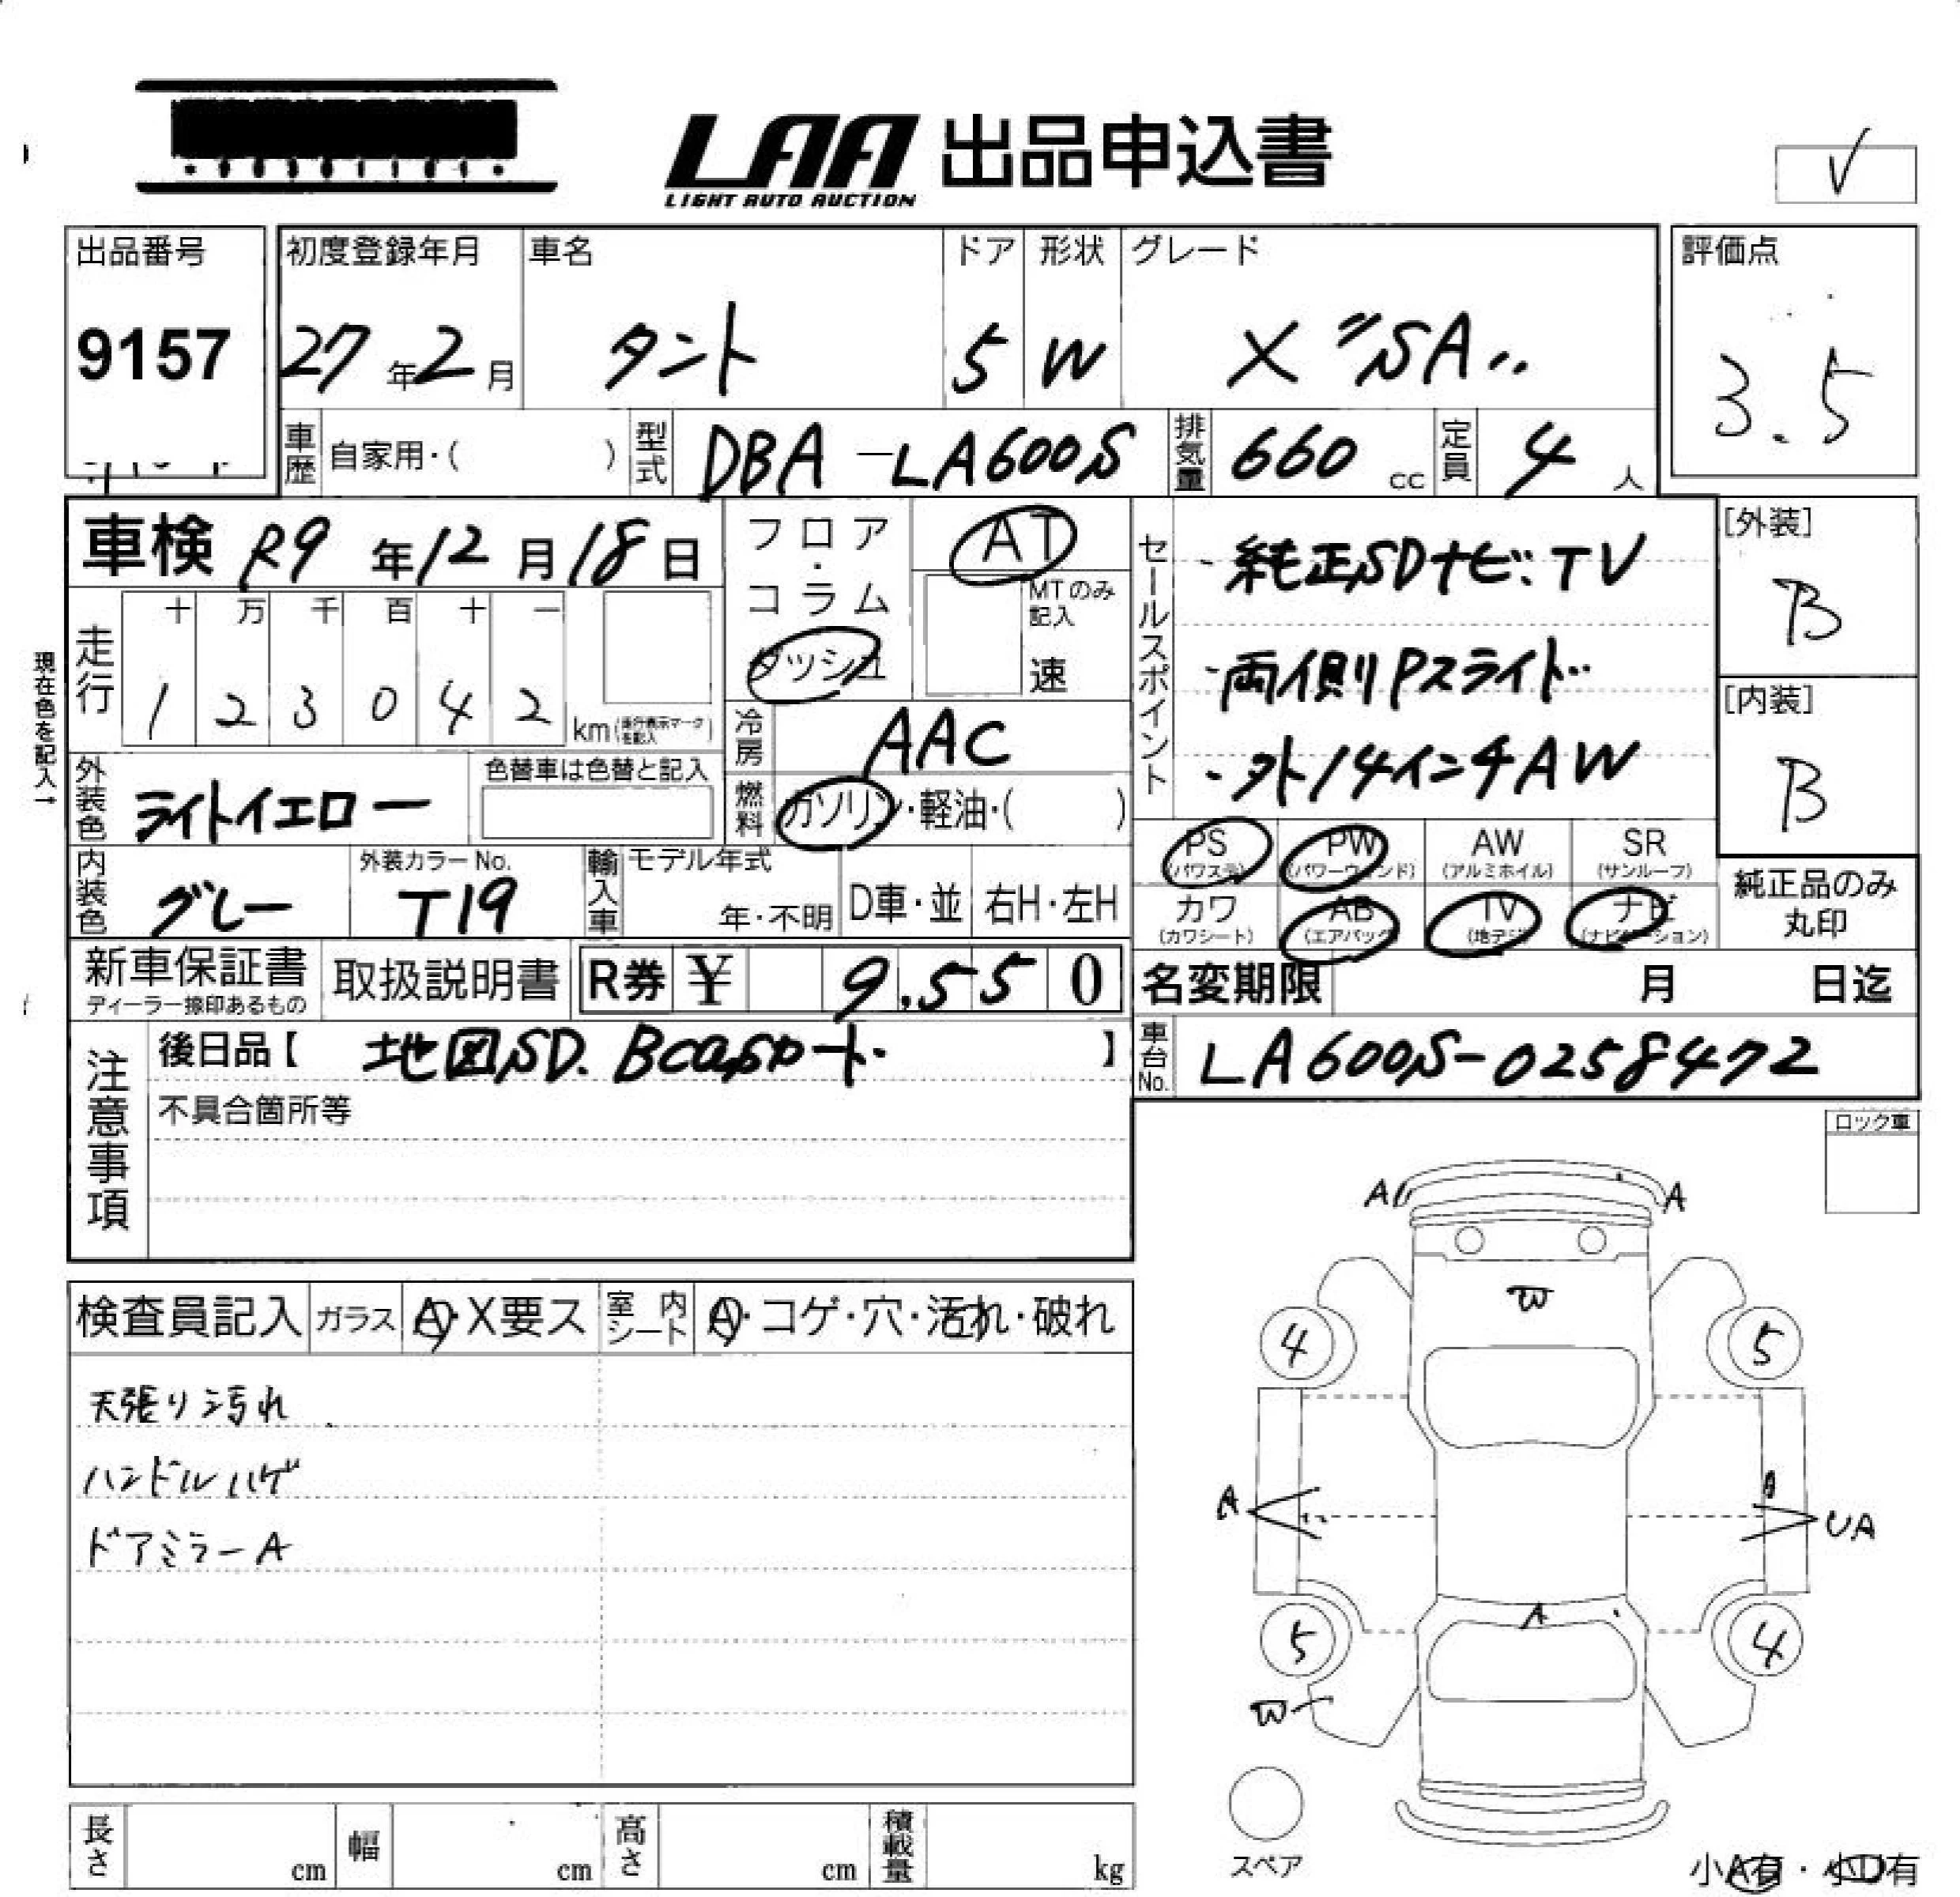 LAA 出品申込書
LIGHT AUTO AUCTION
V
出品番号
9157
初度登録年月
27年2月
車名
タント
ドア
5
形状
W
グレード
X "SA"
評価点
3.5
車歴 自家用・( )
型式 DBA-LA600S
排気量 660 cc
定員 4 人
車検 R9年12月18日
フロア・コラム
ダッシュ
AT
MTのみ記入
速
セールスポイント
・純正SDナビ・TV
・両側Pスライド
・外14インチAW
[外装]
B
[内装]
B
現在色を記入→
走行
十 万 千 百 十 一
1 2 3 0 4 2 km
(走行表示マークを記入)
冷房 AAC
外装色 ライトイエロー
色替車は色替と記入
燃料 ガソリン・軽油・( )
PS (パワステ)
PW (パワーウィンド)
AW (アルミホイル)
SR (サンルーフ)
カワ (カワシート)
AB (エアバック)
TV (地デジ)
ナビ (ナビゲーション)
純正品のみ丸印
内装色 グレー
外装カラーNo. T19
輸入車 モデル年式
年・不明
D車・並
右H・左H
新車保証書
ディーラー捺印あるもの
取扱説明書
R券 ¥ 9,550
名変期限 月 日迄
注意事項
後日品【 地図SD. Bcasカード 】
車台No. LA600S-0258472
不具合箇所等
ロック車
検査員記入
ガラス A・X要ス
室内シート A・コゲ・穴・汚れ・破れ
天張り汚れ
ハンドルハゲ
ドアミラーA
A A
W
4 5
A A UA
A
5 4
W
スペア
長さ cm
幅 cm
高さ cm
積載量 kg
小A有・小D有